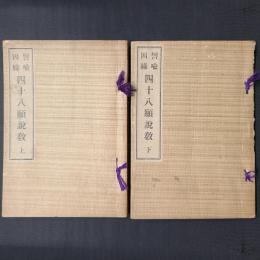 譬喩
因縁
四十八願說教 上
譬喩
因縁
四十八願說教 下